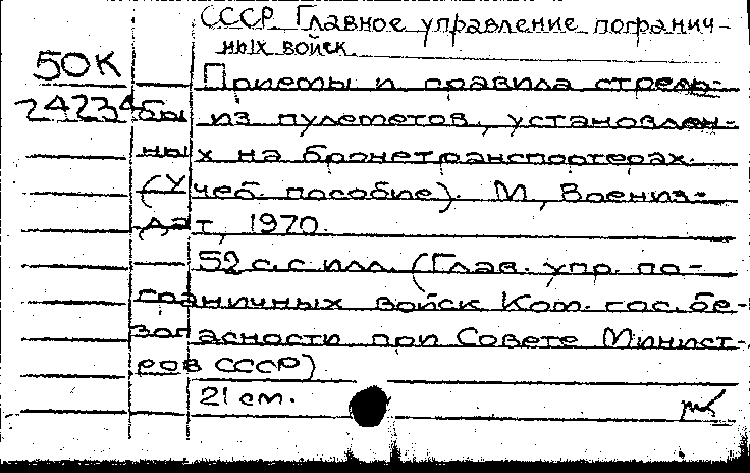 СССР. Главное управление погранич-
ных войск.
50К
Приемы и правила стрель-
24234
бы из пулеметов, установлен-
ных на бронетранспортерах.
(Учеб. пособие). М., Воениз-
дат, 1970.
52 с. с илл. (Глав. упр. по-
граничных войск Ком. гос. бе-
зопасности при Совете Минист-
ров СССР)
21 см.